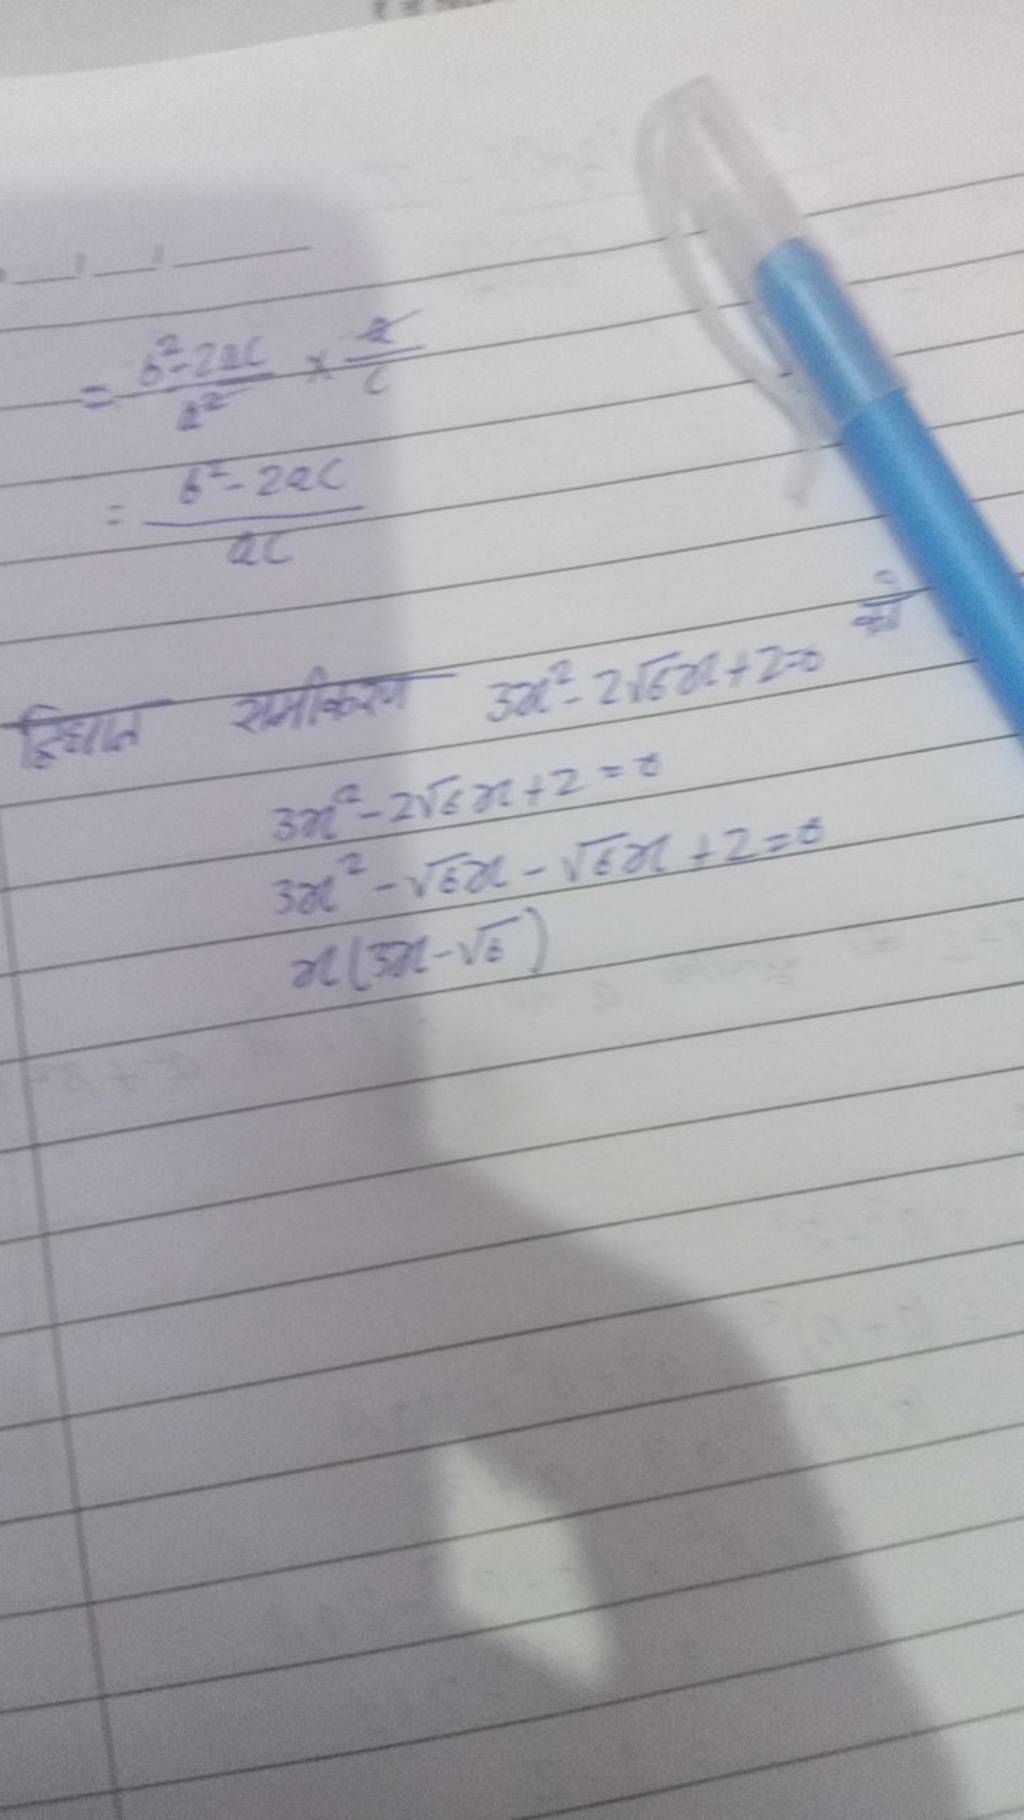 = b²-2ac/a² × a/c
= b²-2ac/ac
द्विघात समीकरण 3x²-2√6x+2=0 की
3x²-2√6x+2=0
3x²-√6x-√6x+2=0
x(3x-√6)